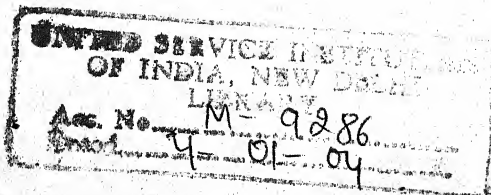 UNITED SERVICE INSTITUTION
OF INDIA, NEW DELHI
LIBRARY
Acc. No. M-9286
Dated 4-01-04